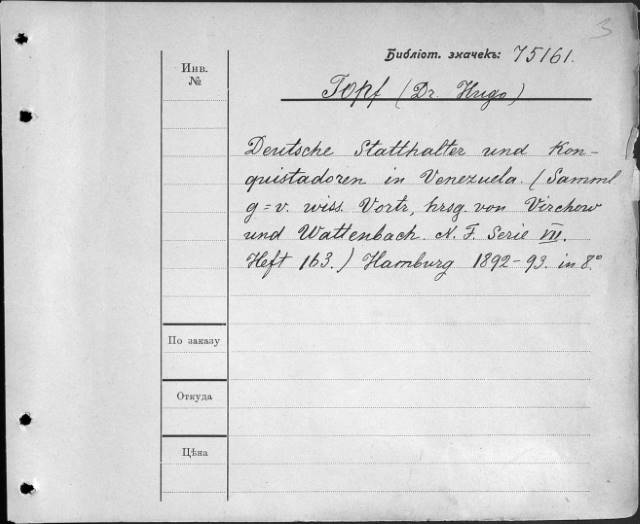 3
Библіот. значекъ: 75161.
Инв.
№
Topf (Dr. Hugo)
Deutsche Statthalter und Kon-
quistadoren in Venezuela. (Samml
g=v. wiss. Vortr, hrsg. von Virchow
und Wattenbach. N. F. Serie VII.
Heft 163.) Hamburg 1892-93. in 8.°
По заказу
Откуда
Цѣна